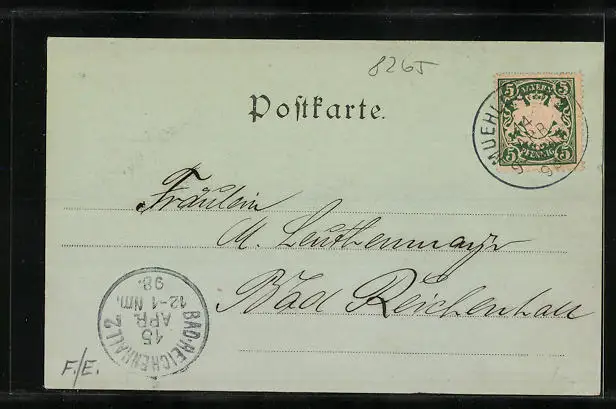 8265
Postkarte.
BAYERN
5 5
PFENNIG
5 5
MUEHL
14
APR
98
Fräulein
M. Leuthenmayr
Bad Reichenhall
BAD-REICHENHALL 2
15
APR
12-1 Nm.
98.
F./E.